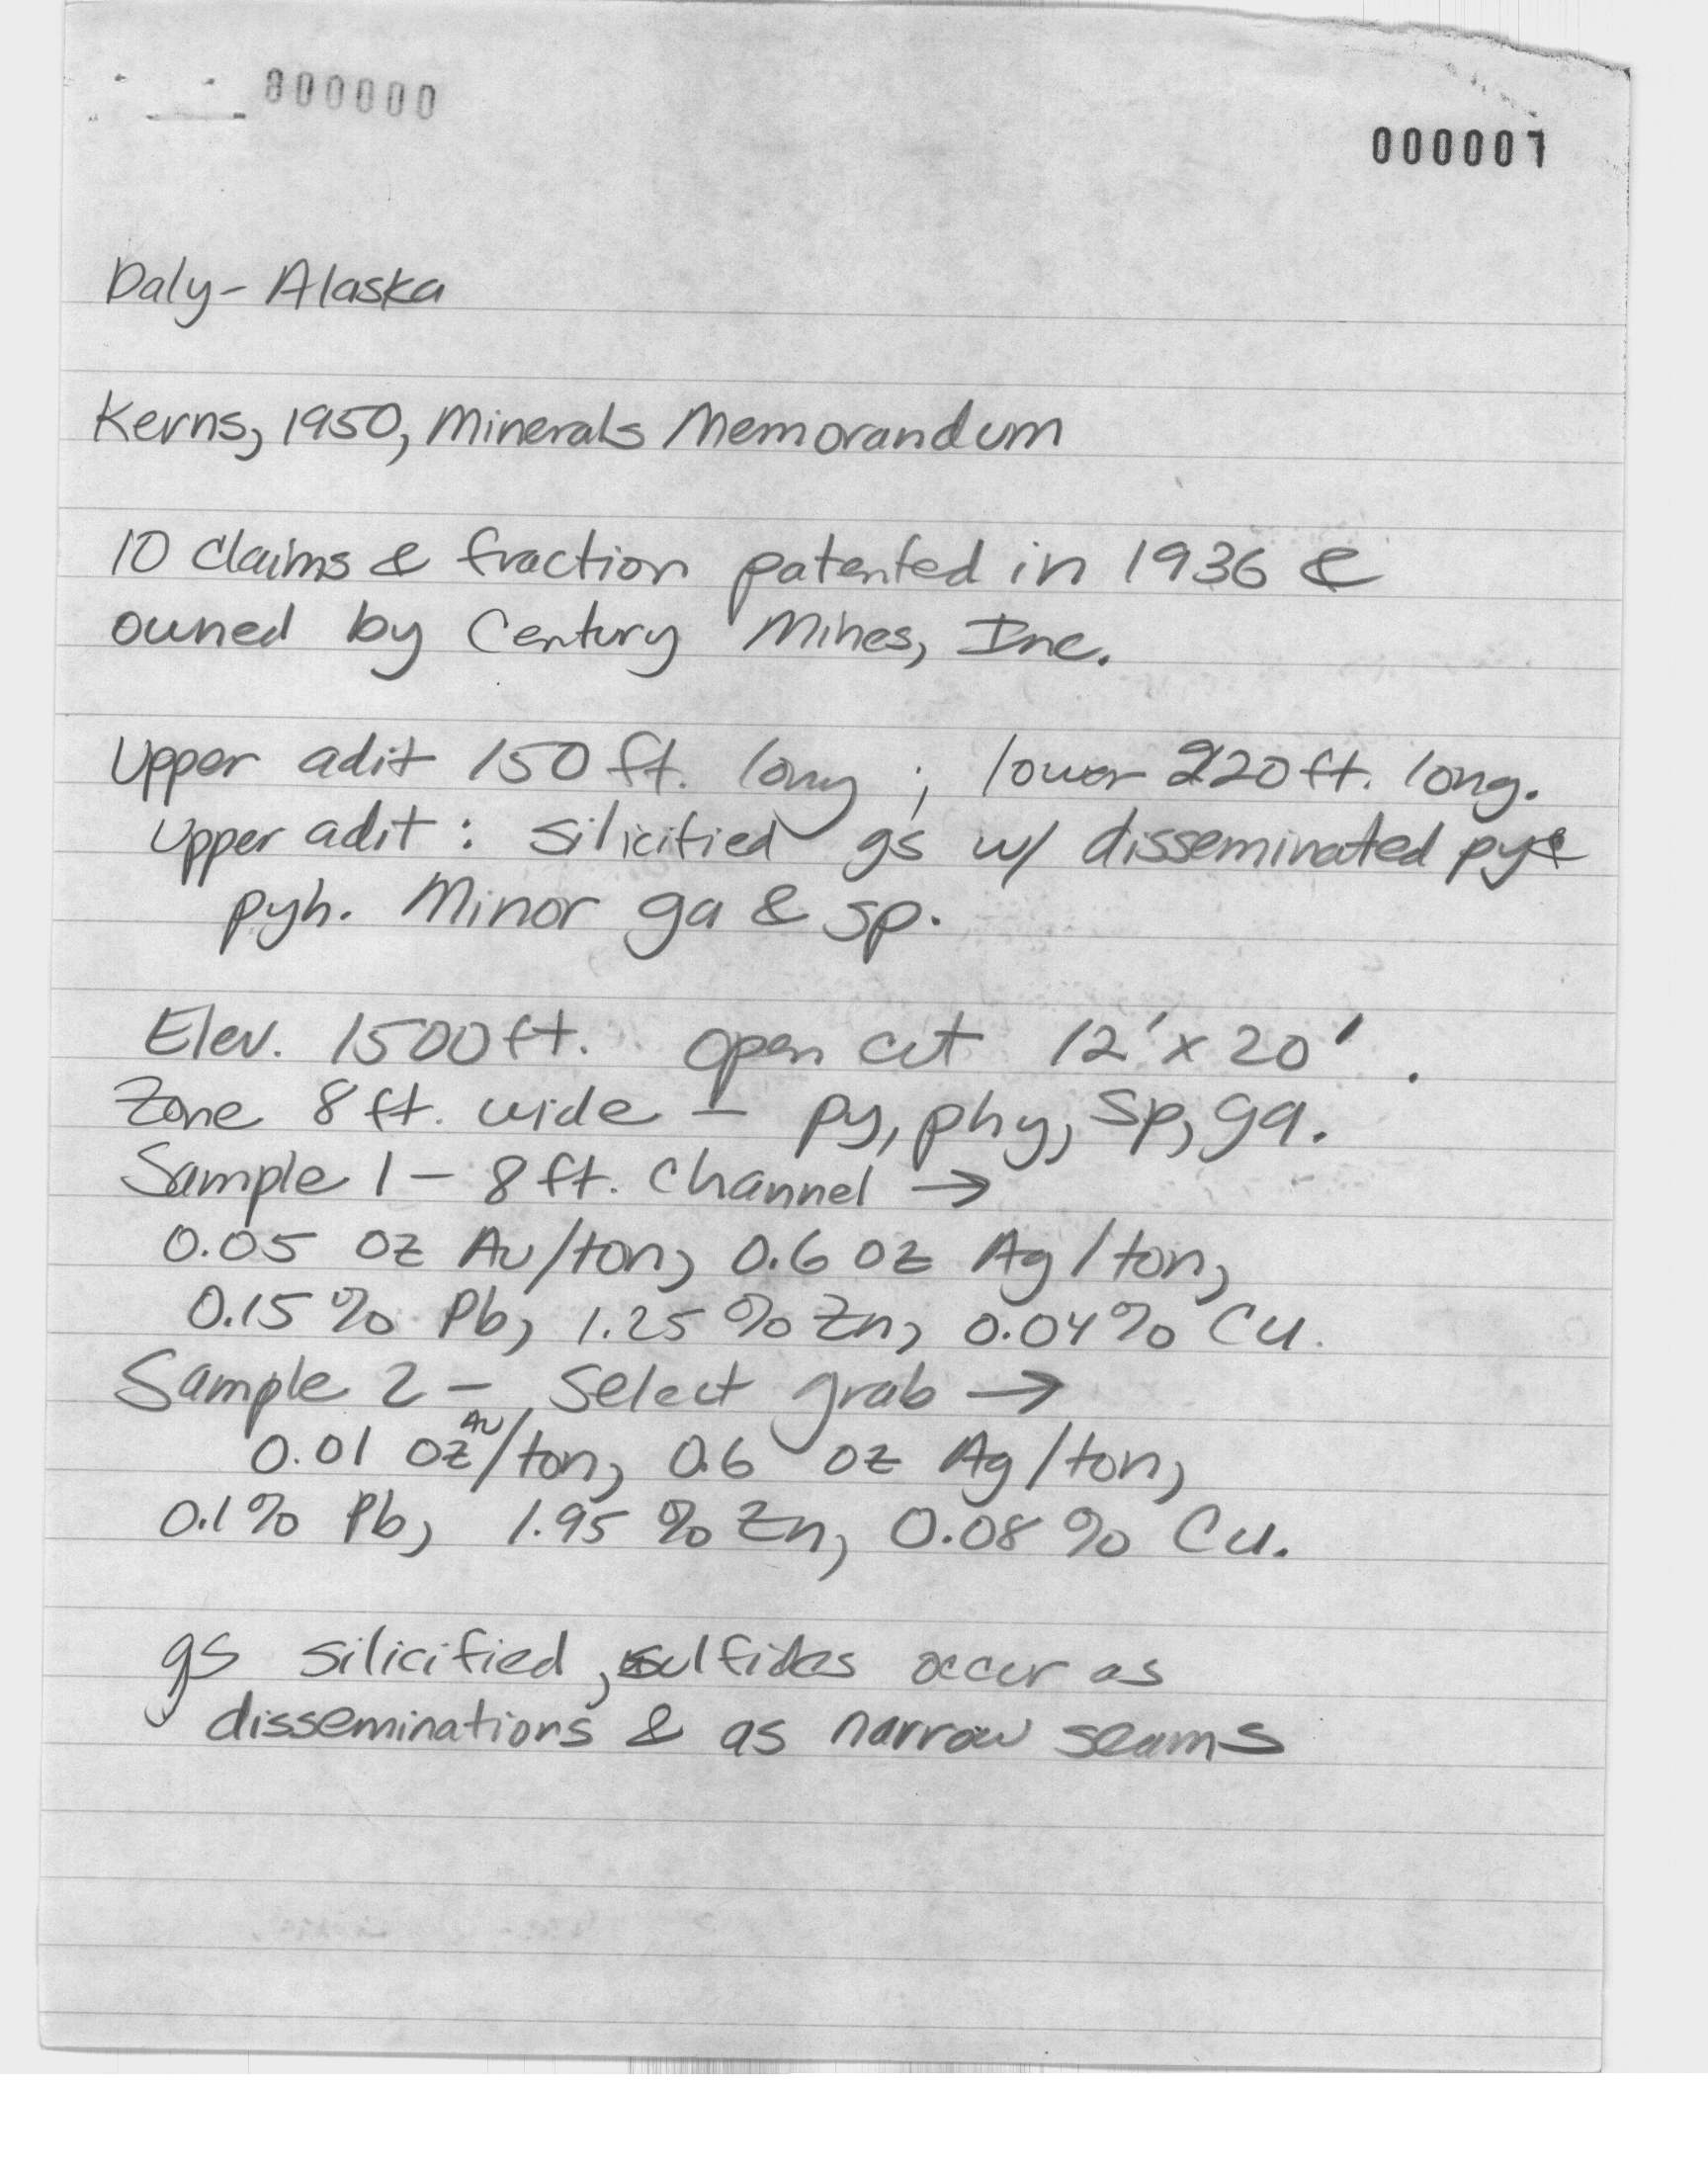 000000
000007
Daly - Alaska
Kerns, 1950, Minerals Memorandum
10 claims & fraction patented in 1936 &
owned by Century Mines, Inc.
Upper adit 150 ft. long ; lower 220 ft. long.
Upper adit : silicified gs w/ disseminated py &
pyh. Minor ga & sp.
Elev. 1500 ft. open cut 12' x 20' .
Zone 8 ft. wide - py, phy, sp, ga.
Sample 1 - 8 ft. channel →
0.05 oz Au/ton, 0.6 oz Ag/ton,
0.15 % Pb, 1.25 % Zn, 0.04 % Cu.
Sample 2 - Select grab →
0.01 oz Au/ton, 0.6 oz Ag/ton,
0.1 % Pb, 1.95 % Zn, 0.08 % Cu.
gs silicified, sulfides occur as
disseminations & as narrow seams